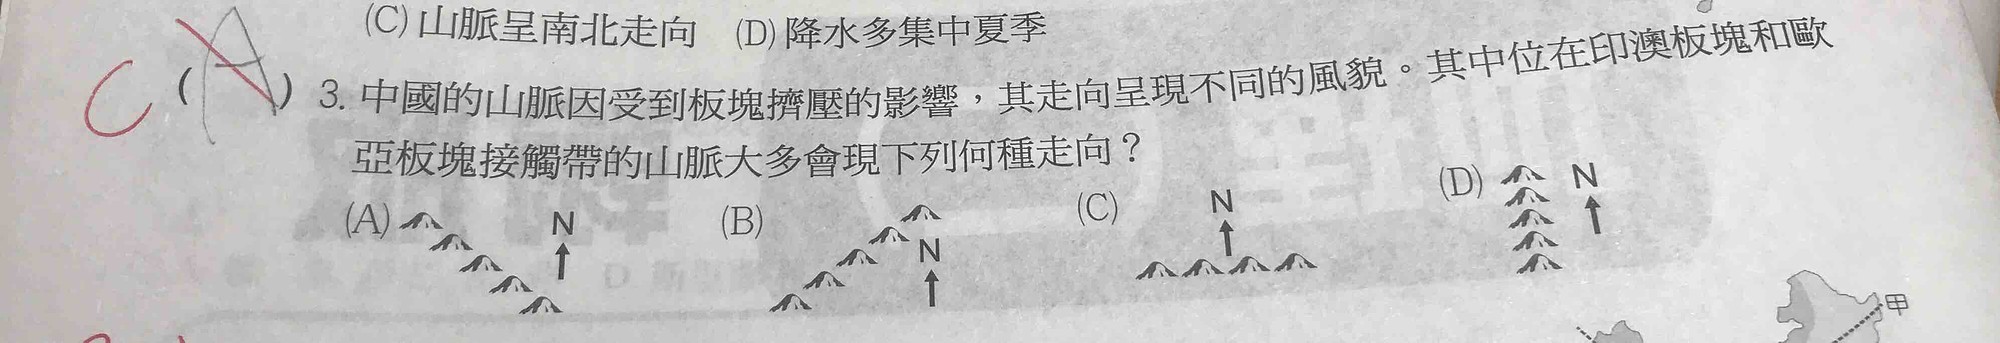 (C)山脈呈南北走向 (D)降水多集中夏季
C (A) 3. 中國的山脈因受到板塊擠壓的影響，其走向呈現不同的風貌。其中位在印澳板塊和歐
亞板塊接觸帶的山脈大多會現下列何種走向？
(A) N (B) N (C) N (D) N
甲